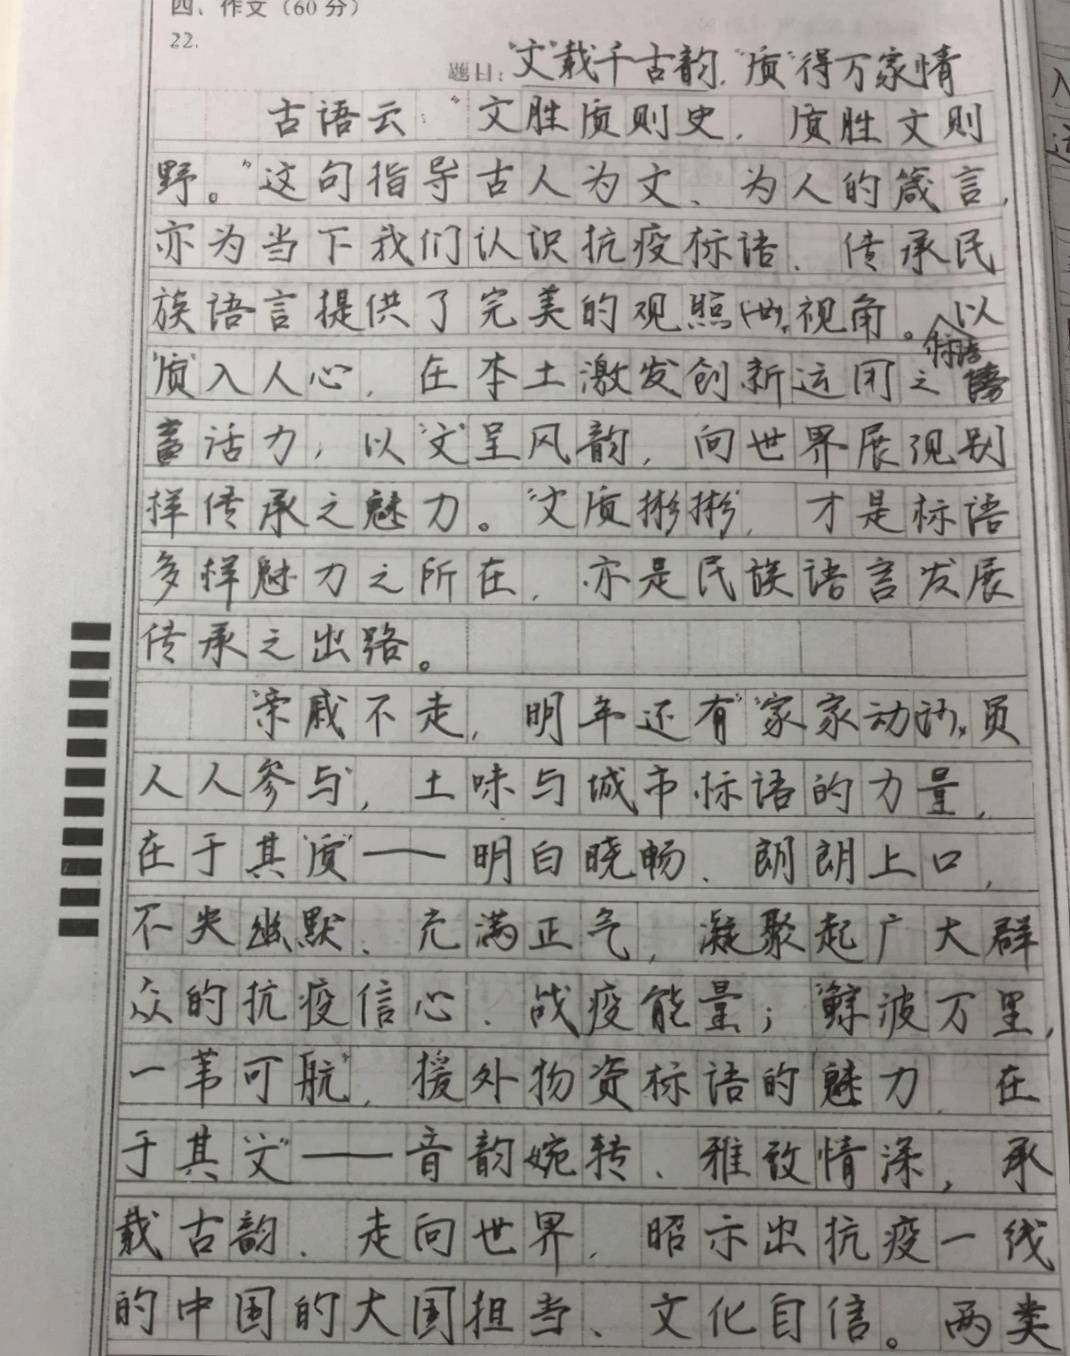 四、作文（60分）
22.
题目："文"载千古韵，"质"得万家情
古语云："文胜质则史，质胜文则
野。"这句指导古人为文、为人的箴言，
亦为当下我们认识抗疫标语、传承民
族语言提供了完美的观照视角。以
"质"入人心，在本土激发创新运用之标语
活力，以"文"呈风韵，向世界展现别
样传承之魅力。"文质彬彬"，才是标语
多样魅力之所在，亦是民族语言发展
传承之出路。
"亲戚不走，明年还有""家家动员
人人参与"，土味与城市标语的力量，
在于其"质"——明白晓畅、朗朗上口，
不失幽默、充满正气，凝聚起广大群
众的抗疫信心、战疫能量；"鲸波万里，
一苇可航"，援外物资标语的魅力，在
于其"文"——音韵婉转、雅致情深，承
载古韵、走向世界，昭示出抗疫一线
的中国的大国担当、文化自信。两类